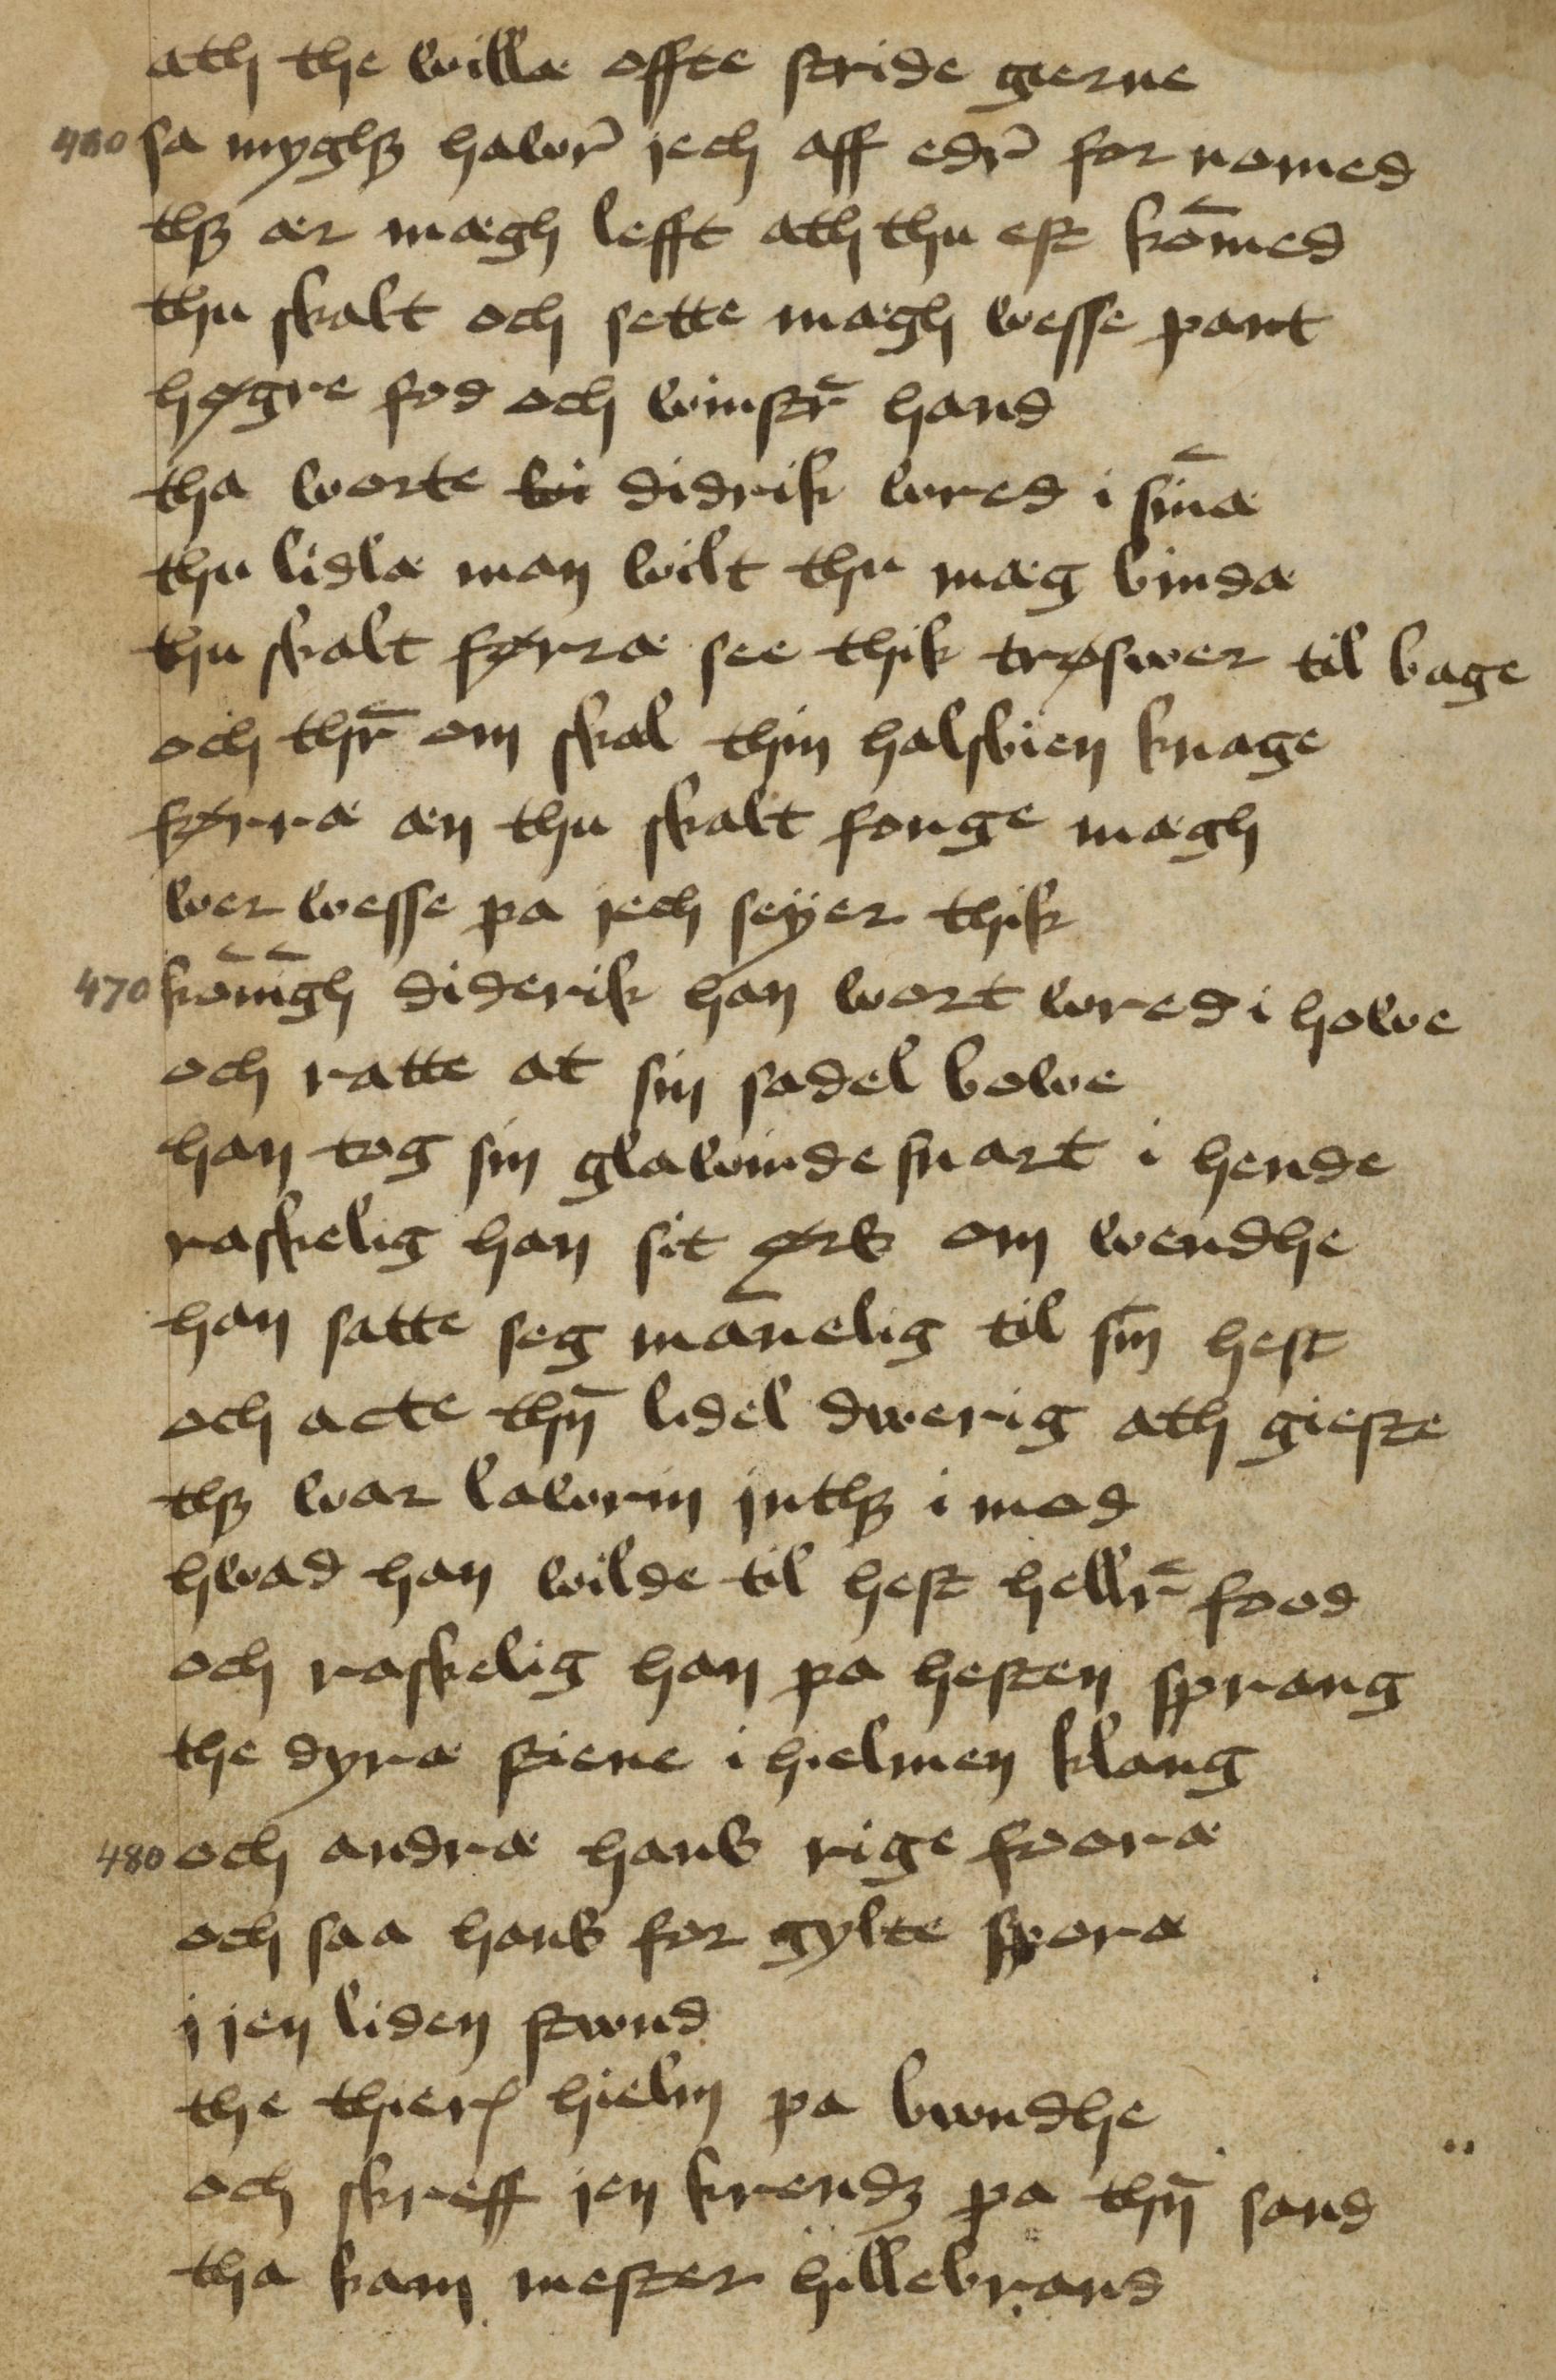 ath the willæ offte stride gierne
460 sa myghꝫ hawer̄ jech aff eder̄ for nomed
thꝫ ær mægh lefft ath thu est kōmed
thu skalt och sette mægh wesse pant
høgre fod och winstr̄ hand
tha worte wi didrik wred i sīnæ
thu lidlæ man wilt thu mæg bindæ
thu skalt førræ see thik trøswer til bage
och thr̄ om skal thin halsbien knage
førræ æn thu skalt fonge mægh
wer wesse pa jech seÿer thik
470 kōnīgh diderik han wort wred i howe
och ratte at sin sadel bowe
han tog sin glawinde snart i hende
raskelig han sit ørs om wendhe
han satte seg mānelig til sin̄ hest
och acte thn̄ lidel dwerig ath gieste
thꝫ war lawrin jnthꝫ i mod
hwad han wilde til hest hellr̄ food
och raskelig han pa hesten sprang
the dyræ stene i hielmen klang
480 och andræ hans rige fooræ
och saa hans for gylte sporæ
j jen liden stwnd
the thieris hielm pa bwndhe
och skreff jen krendꝫ pa thn̄ sand
tha kam mester hillebrand